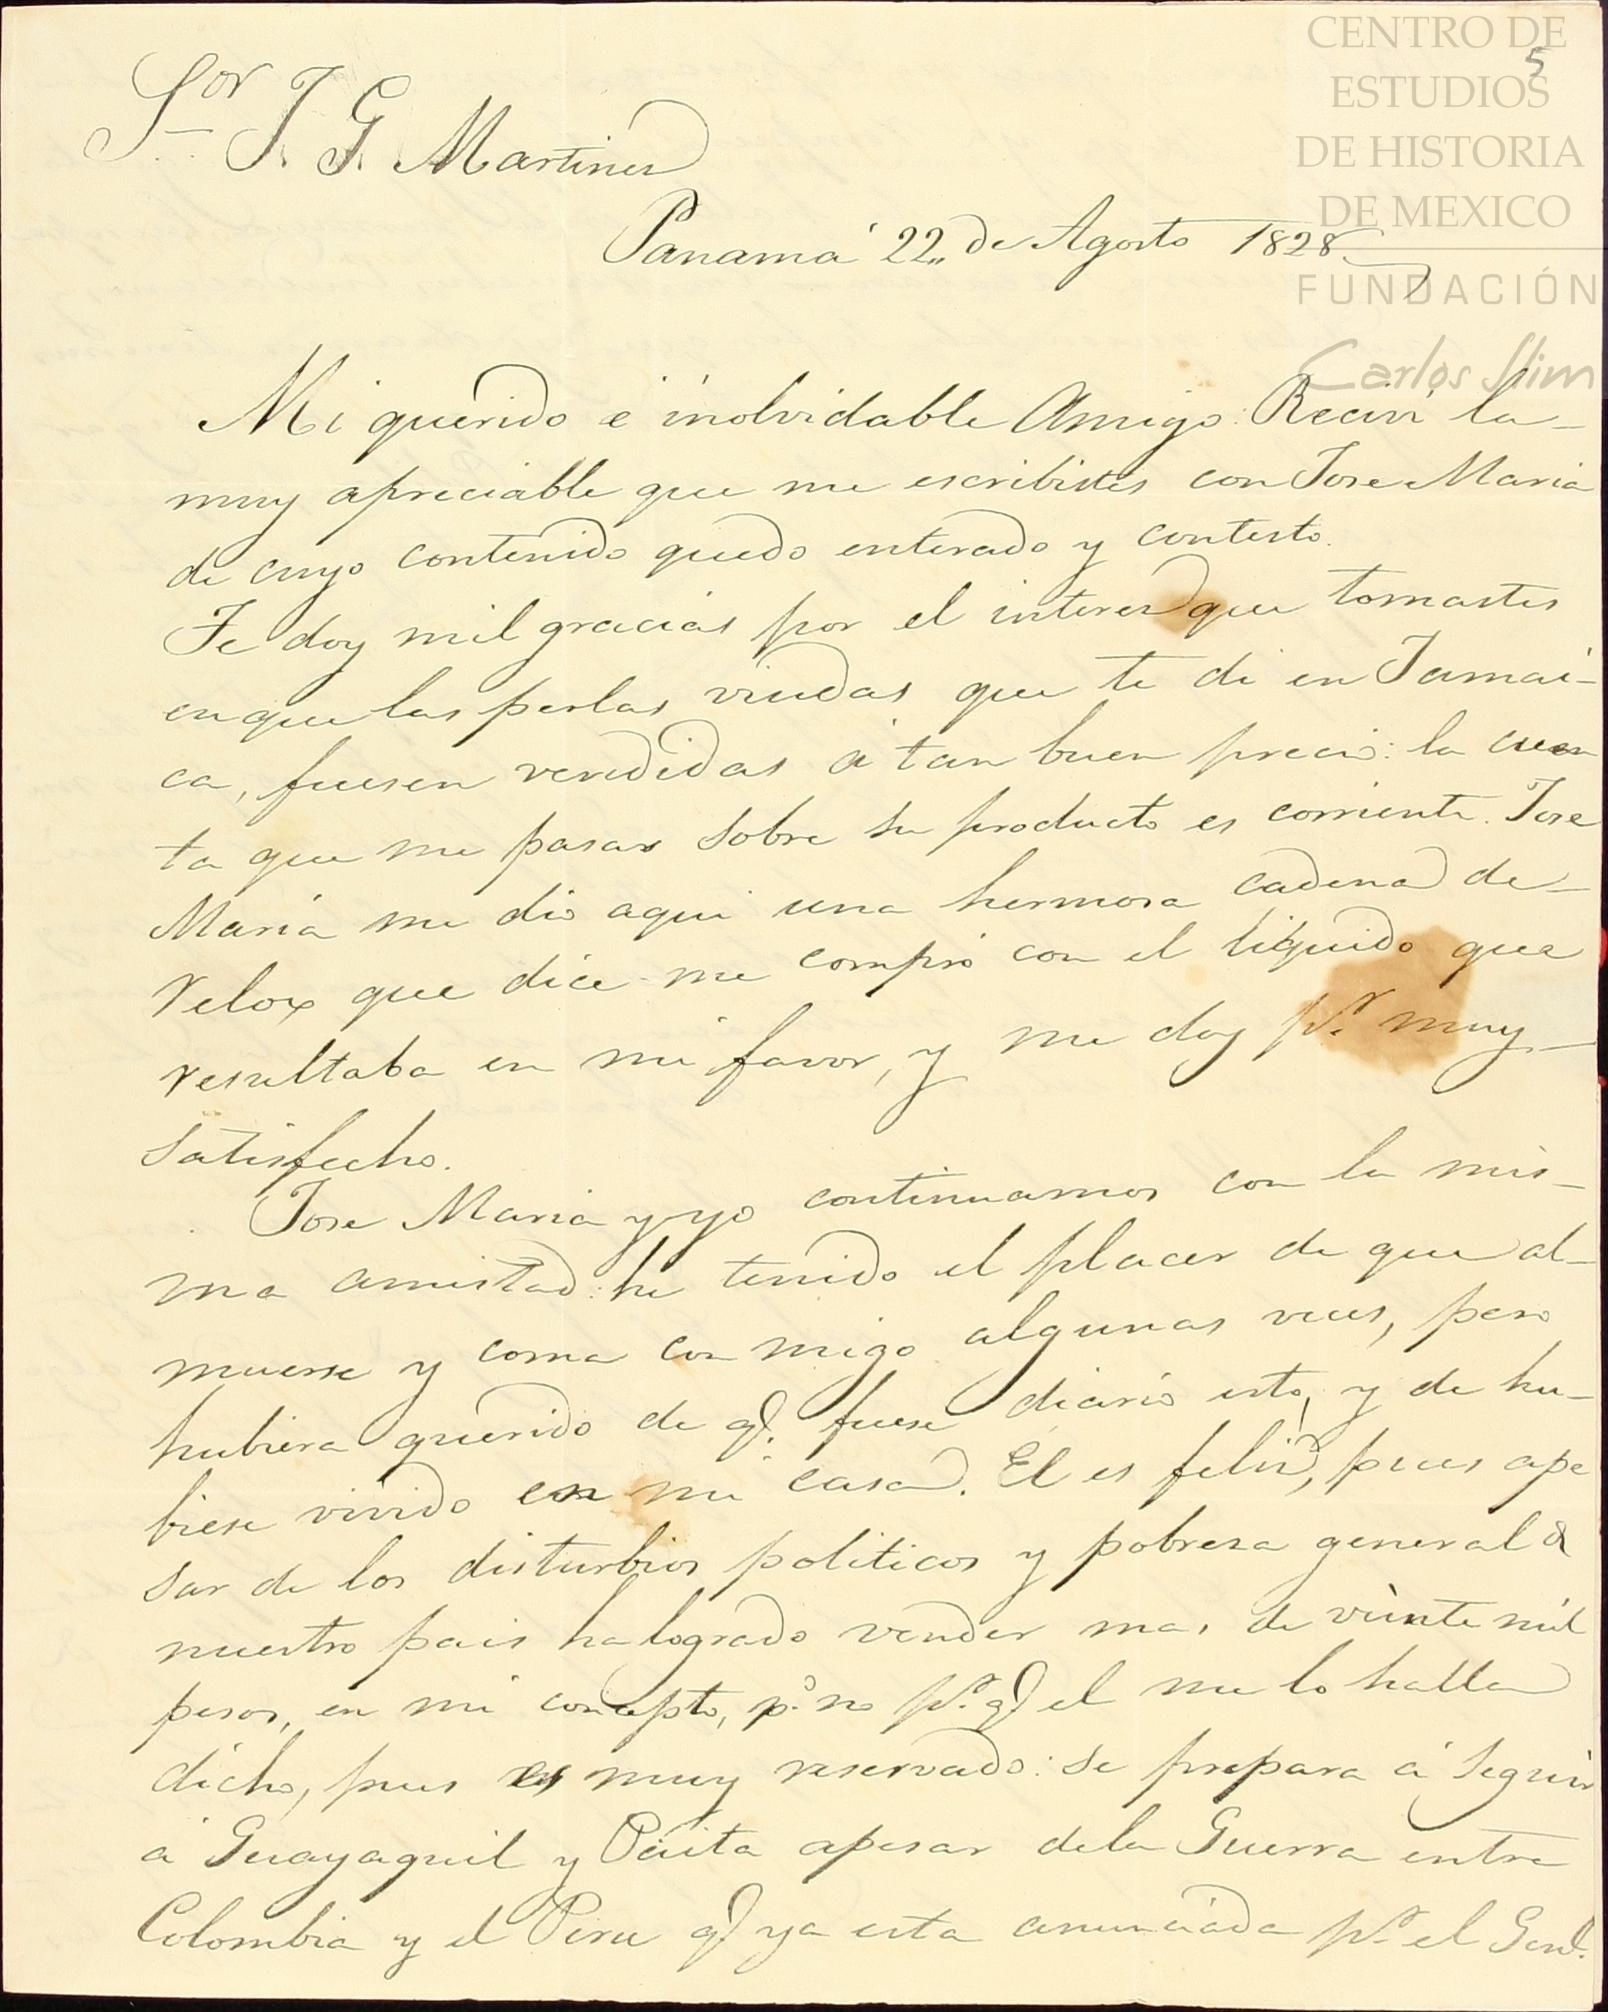 CENTRO DE
ESTUDIOS
DE HISTORIA
DE MEXICO
FUNDACIÓN
Carlos Slim
5
Sor. J. G. Martinez
Panamá 22,, de Agosto 1828
Mi querido é inolvidable Amigo: Reciví la
muy apreciable que me escribistes con Jose Maria
de cuyo contenido quedo enterado y contesto.
Te doy mil gracias por el interes que tomastes
en que las perlas viudas que te di en Jamai-
ca, fuesen vendidas á tan buen precio: la cuen
ta que me pasas sobre su producto es corriente. Jose
Maria me dio aqui una hermosa cadena de
relox que dice me compró con el liquido que
resultaba en mi favor, y me doy pr. muy
satisfecho.
Jose Maria y yo continuamos con la mis-
ma amistad: he tenido el placer de que al-
muerse y coma con migo algunas veces, pero
hubiera querido de q. fuese diario esto, y de hu-
biese vivido en mi casa. El es feliz, pues ape
sar de los disturbios politicos y pobreza general de
nuestro pais ha logrado vender mas de viente mil
pesos, en mi concepto, po. no pr. q. el me lo halla
dicho, pues es muy reservado: se prepara á seguir
á Guayaquil y Paita apesar dela Guerra entre
Colombia y el Peru q. ya esta anunciada pr. el Genl.